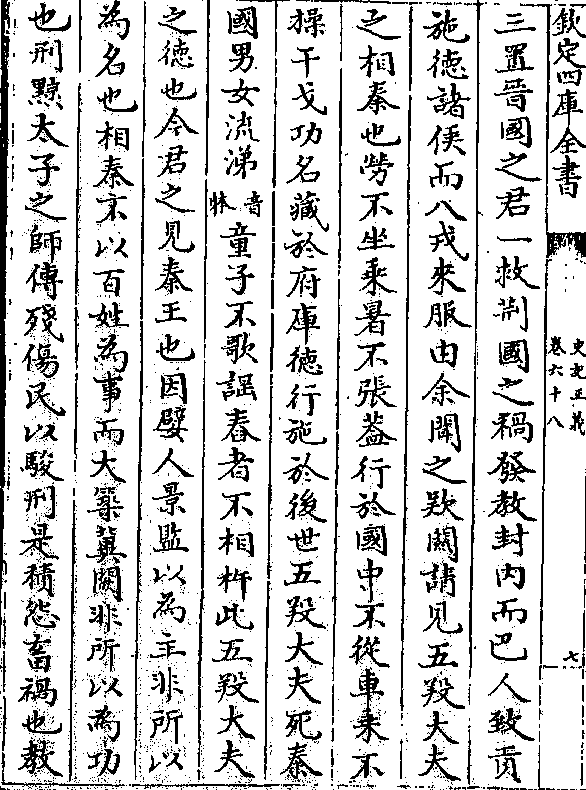 欽定四庫全書
史記正義
卷六十八
七
三置晉國之君一救荆國之禍發教封内而巴人致貢
施徳諸侯而八戎來服由余聞之欵闗請見五羖大夫
之相秦也勞不坐乗暑不張葢行於國中不從車乗不
操干戈功名藏於府庫徳行施於後世五羖大夫死秦
國男女流涕音體童子不歌謡舂者不相杵此五羖大夫
之徳也今君之見秦王也因嬖人景監以為主非所以
為名也相秦不以百姓為事而大築冀闕非所以為功
也刑黥太子之師傅殘傷民以駿刑是積怨畜禍也教